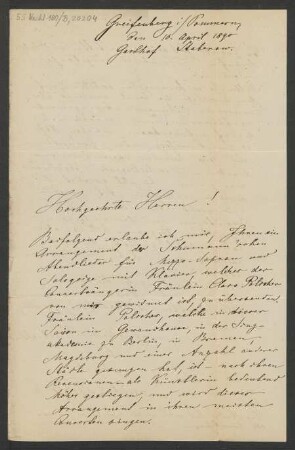 Greifenberg i/Pommern,
den 10. April 1890
Gasthof
Hochgeehrte Herren !
Beifolgend erlaube ich mir, Ihnen ein
Arrangement des Schumann'schen
Abendliedes für Mezzo-Sopran und
Sologeige mit Klavier, welches der
Concertsängerin Fräulein Clara
von mir gewidmet ist, zu übersenden.
Fräulein welche in dieser
Saison im Gewandhause, in der Sing-
akademie zu Berlin, in Bremen,
Magdeburg und einer Anzahl andrer
Städte gesungen hat, ist - nach ihren
Recensionen - als Künstlerin bedeutend
höher gestiegen, und wird dieses
Arrangement in ihren meisten
Concerten singen.